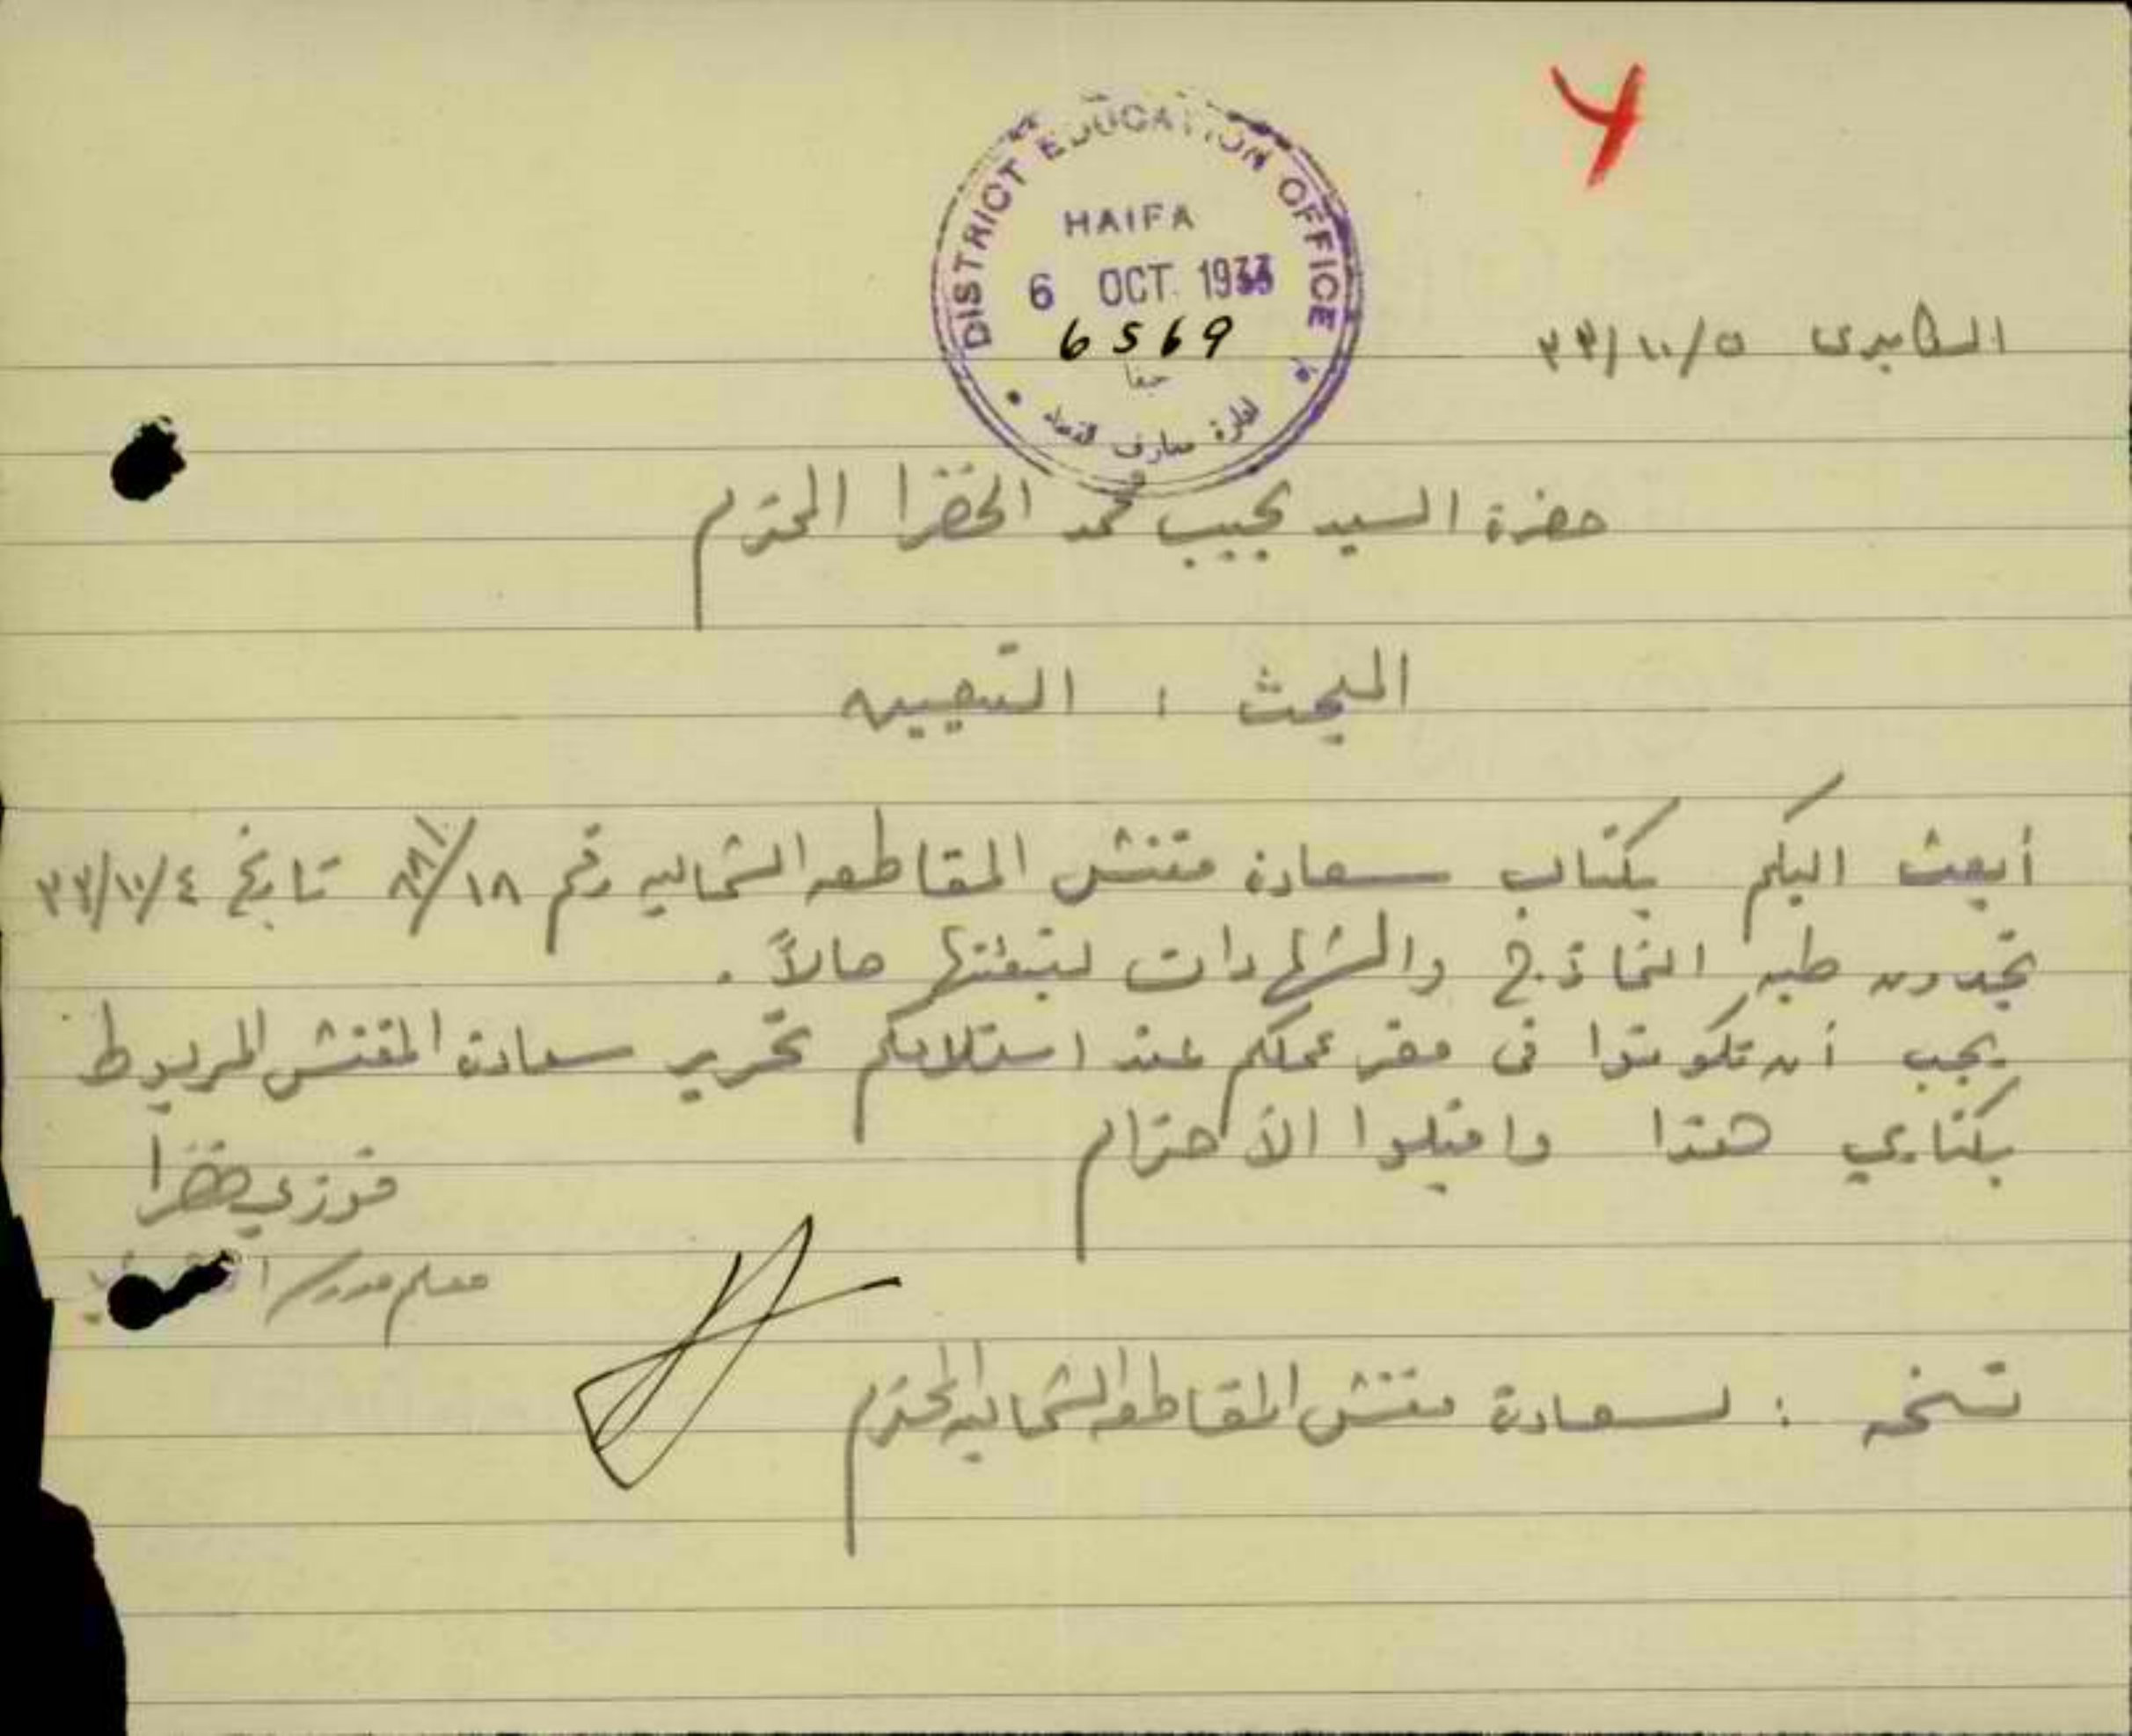 ٧
DISTRICT EDUCATION OFFICE
HAIFA
6 OCT. 1933
6569
حيفا
ادارة معارف
الكابري ٥/١٠/٣٣
حضرة السيد نجيب محمد الخضرا المحترم
المبحث : التعيين
أبعث اليكم بكتاب سعادة مفتش المقاطعه الشماليه رقم ١٨/ تاريخ ٤/١٠/٣٣
تجدون طيه النماذج والشهادات لتعبئتها حالاً .
يجب أن تكونوا في مقر عملكم عند استلامكم تحرير سعادة المفتش المربوط
بكتابي هذا واقبلوا الأحترام
فوزي خضرا
معلم مدرسة
نسخه : لسعادة مفتش المقاطعه الشماليه المحترم